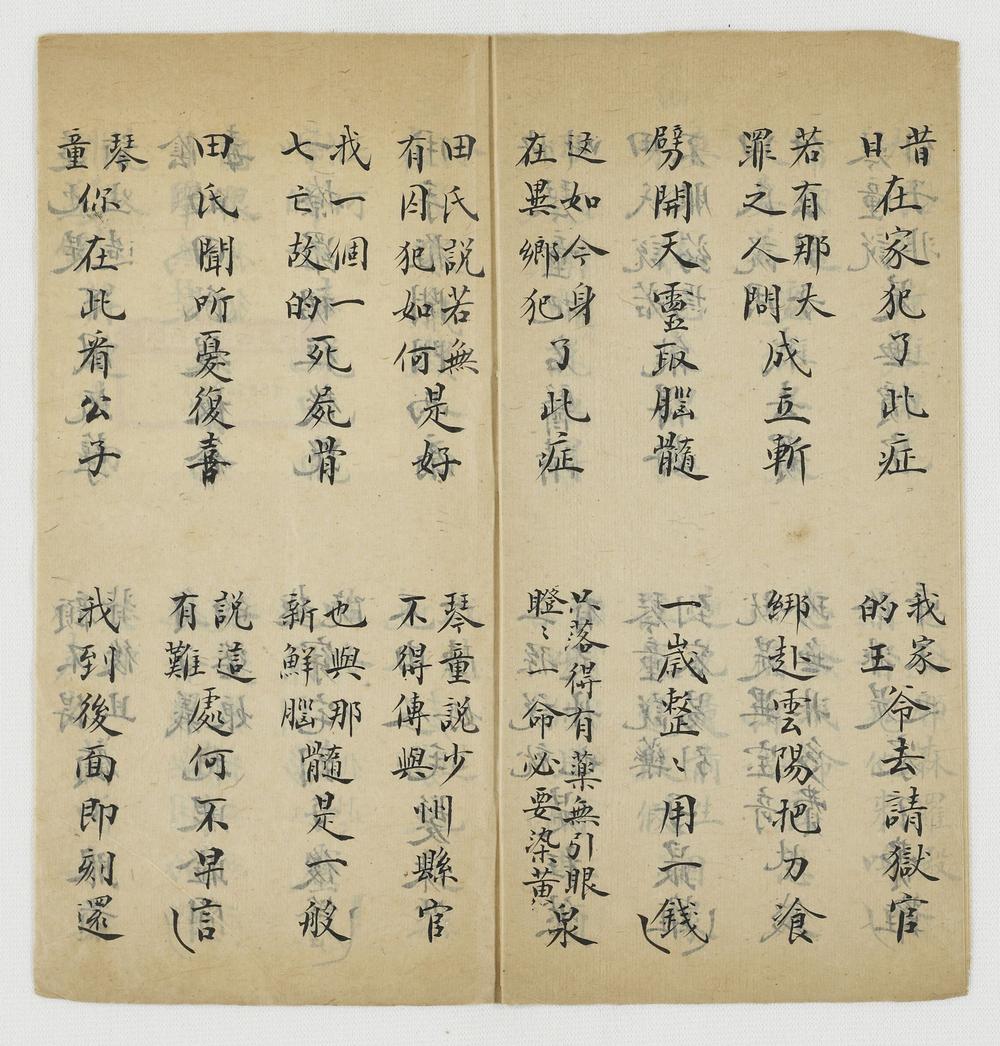 昔日在家犯了此症
我家的王爷去請獄官
若有那大罪之人問成立斬
綁赴雲陽把刀飡
劈開天靈取腦髓
一歲整〻用一錢
這如今身在異鄉犯了此症
只落得有藥無引眼瞪〻一命必要染黄泉
田氏說若無有囚犯如何是好
琴童說少不得傳與州縣官
我一個一七亡故的死屍骨
也與那新鮮腦髓是一般
田氏聞听憂復喜
說這有難處何不早言
琴童你在此看公子
我到後面即刻還